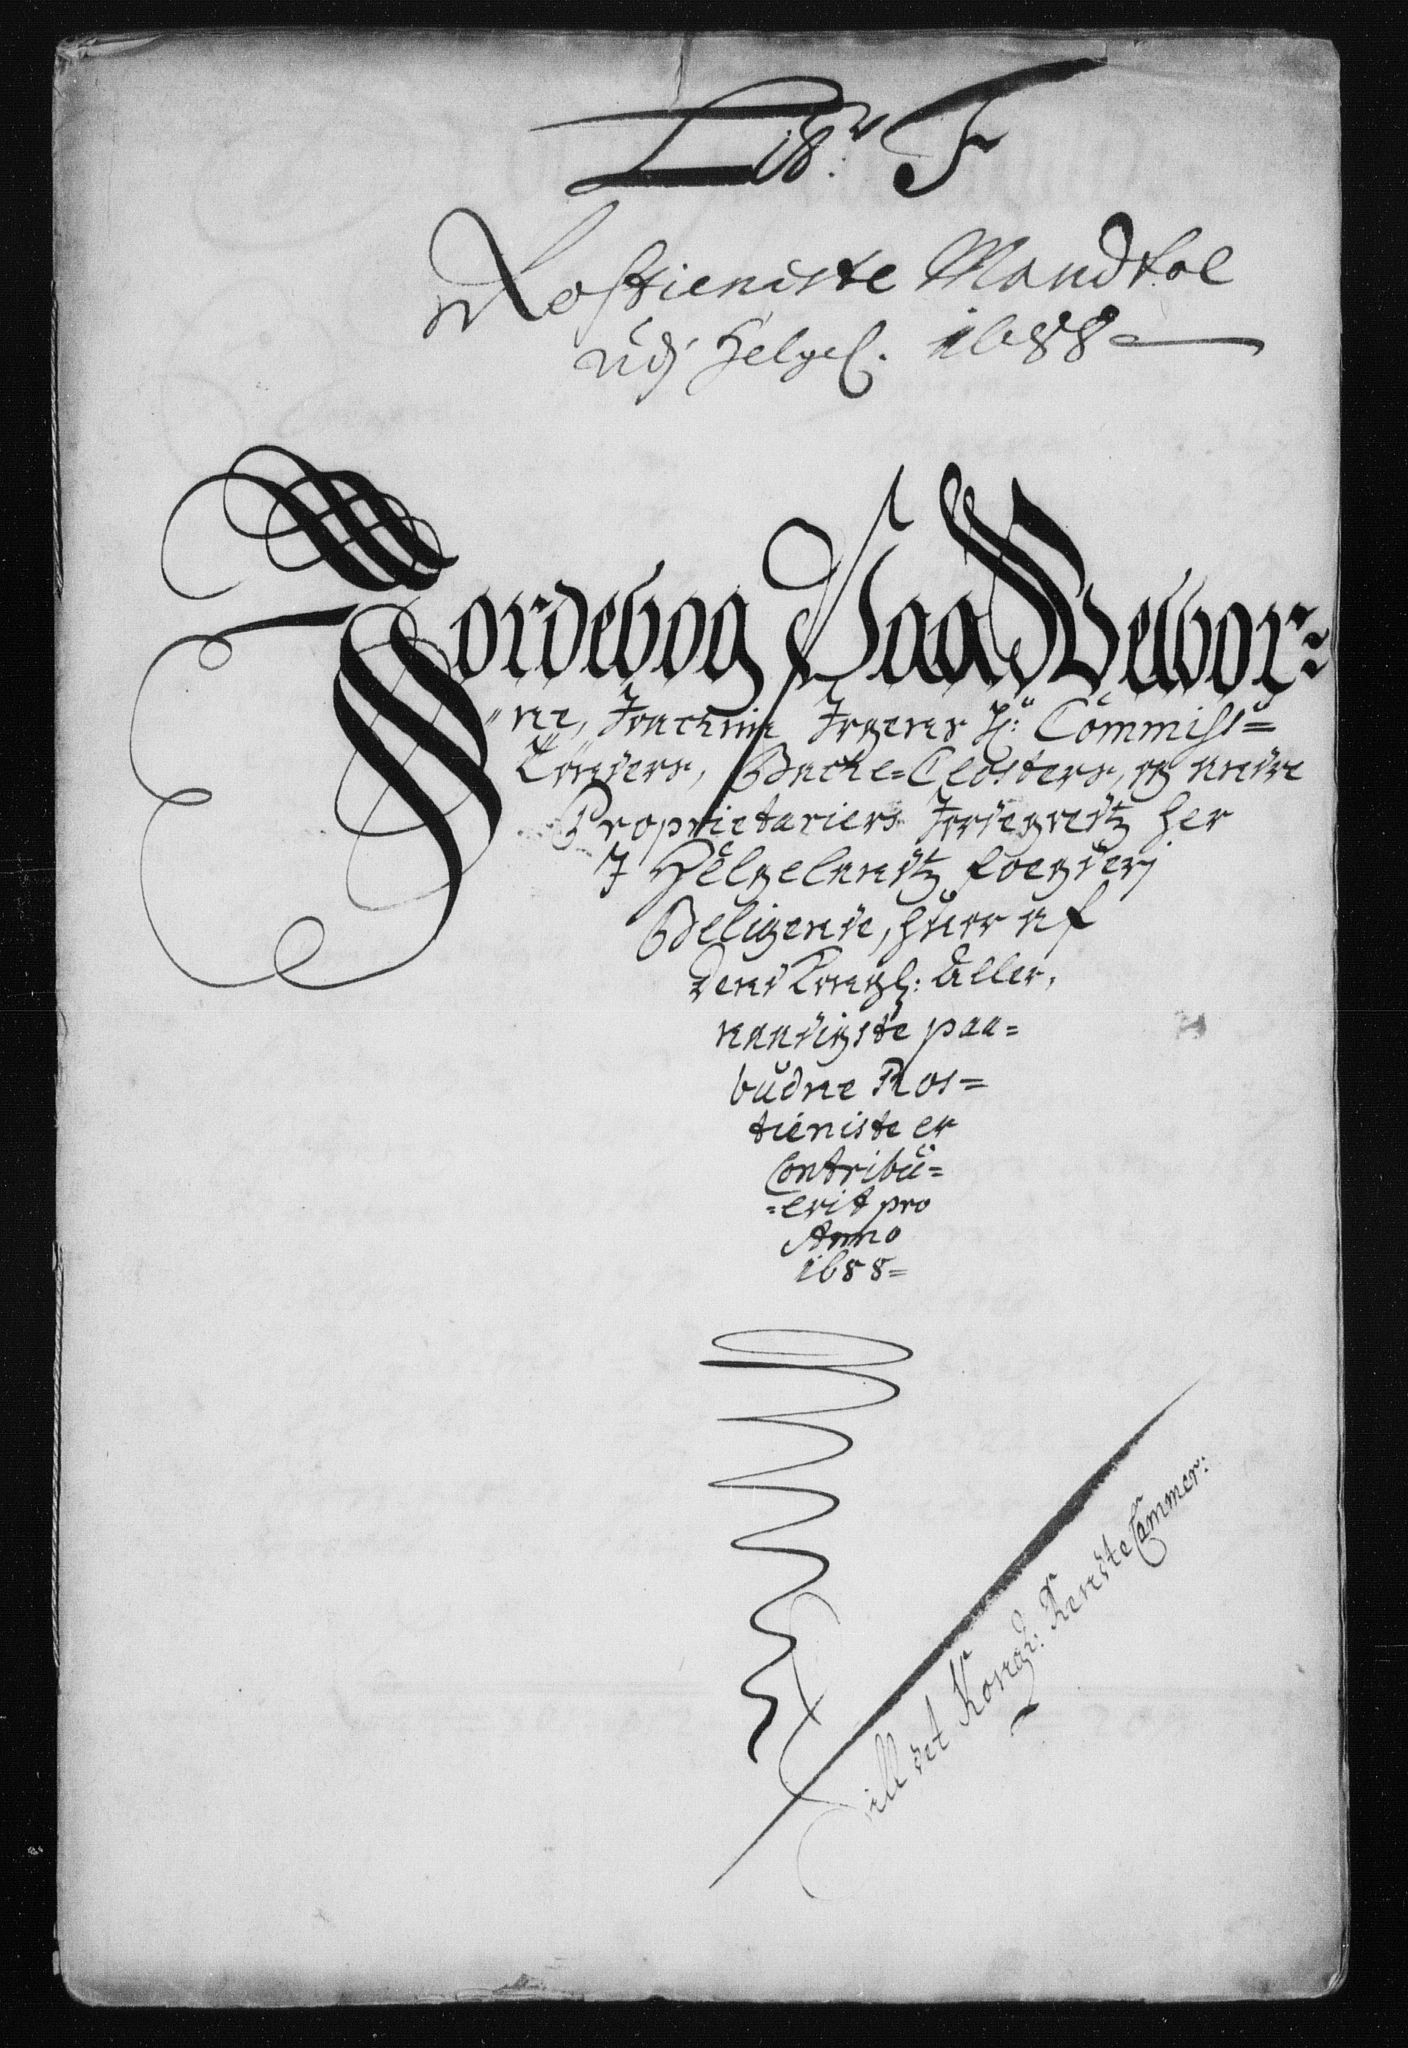 Litr: F
Rostieniste Mandtal
udj Helgel. 1688
Jordebog Paa Welbor=
ne, Joachim Irgens H: Commiss=
Backe=Closters, og andre
Proprietariers Jordegodtz her
I Helgelandtz foegderj
Beligende, huor af
dend Kongl: Aller,
naadigste paa=
budne Ros=
tieniste er
Contribu=
=erit pro
Anno
1688=
Till det Kongl: Rendte Cammer: